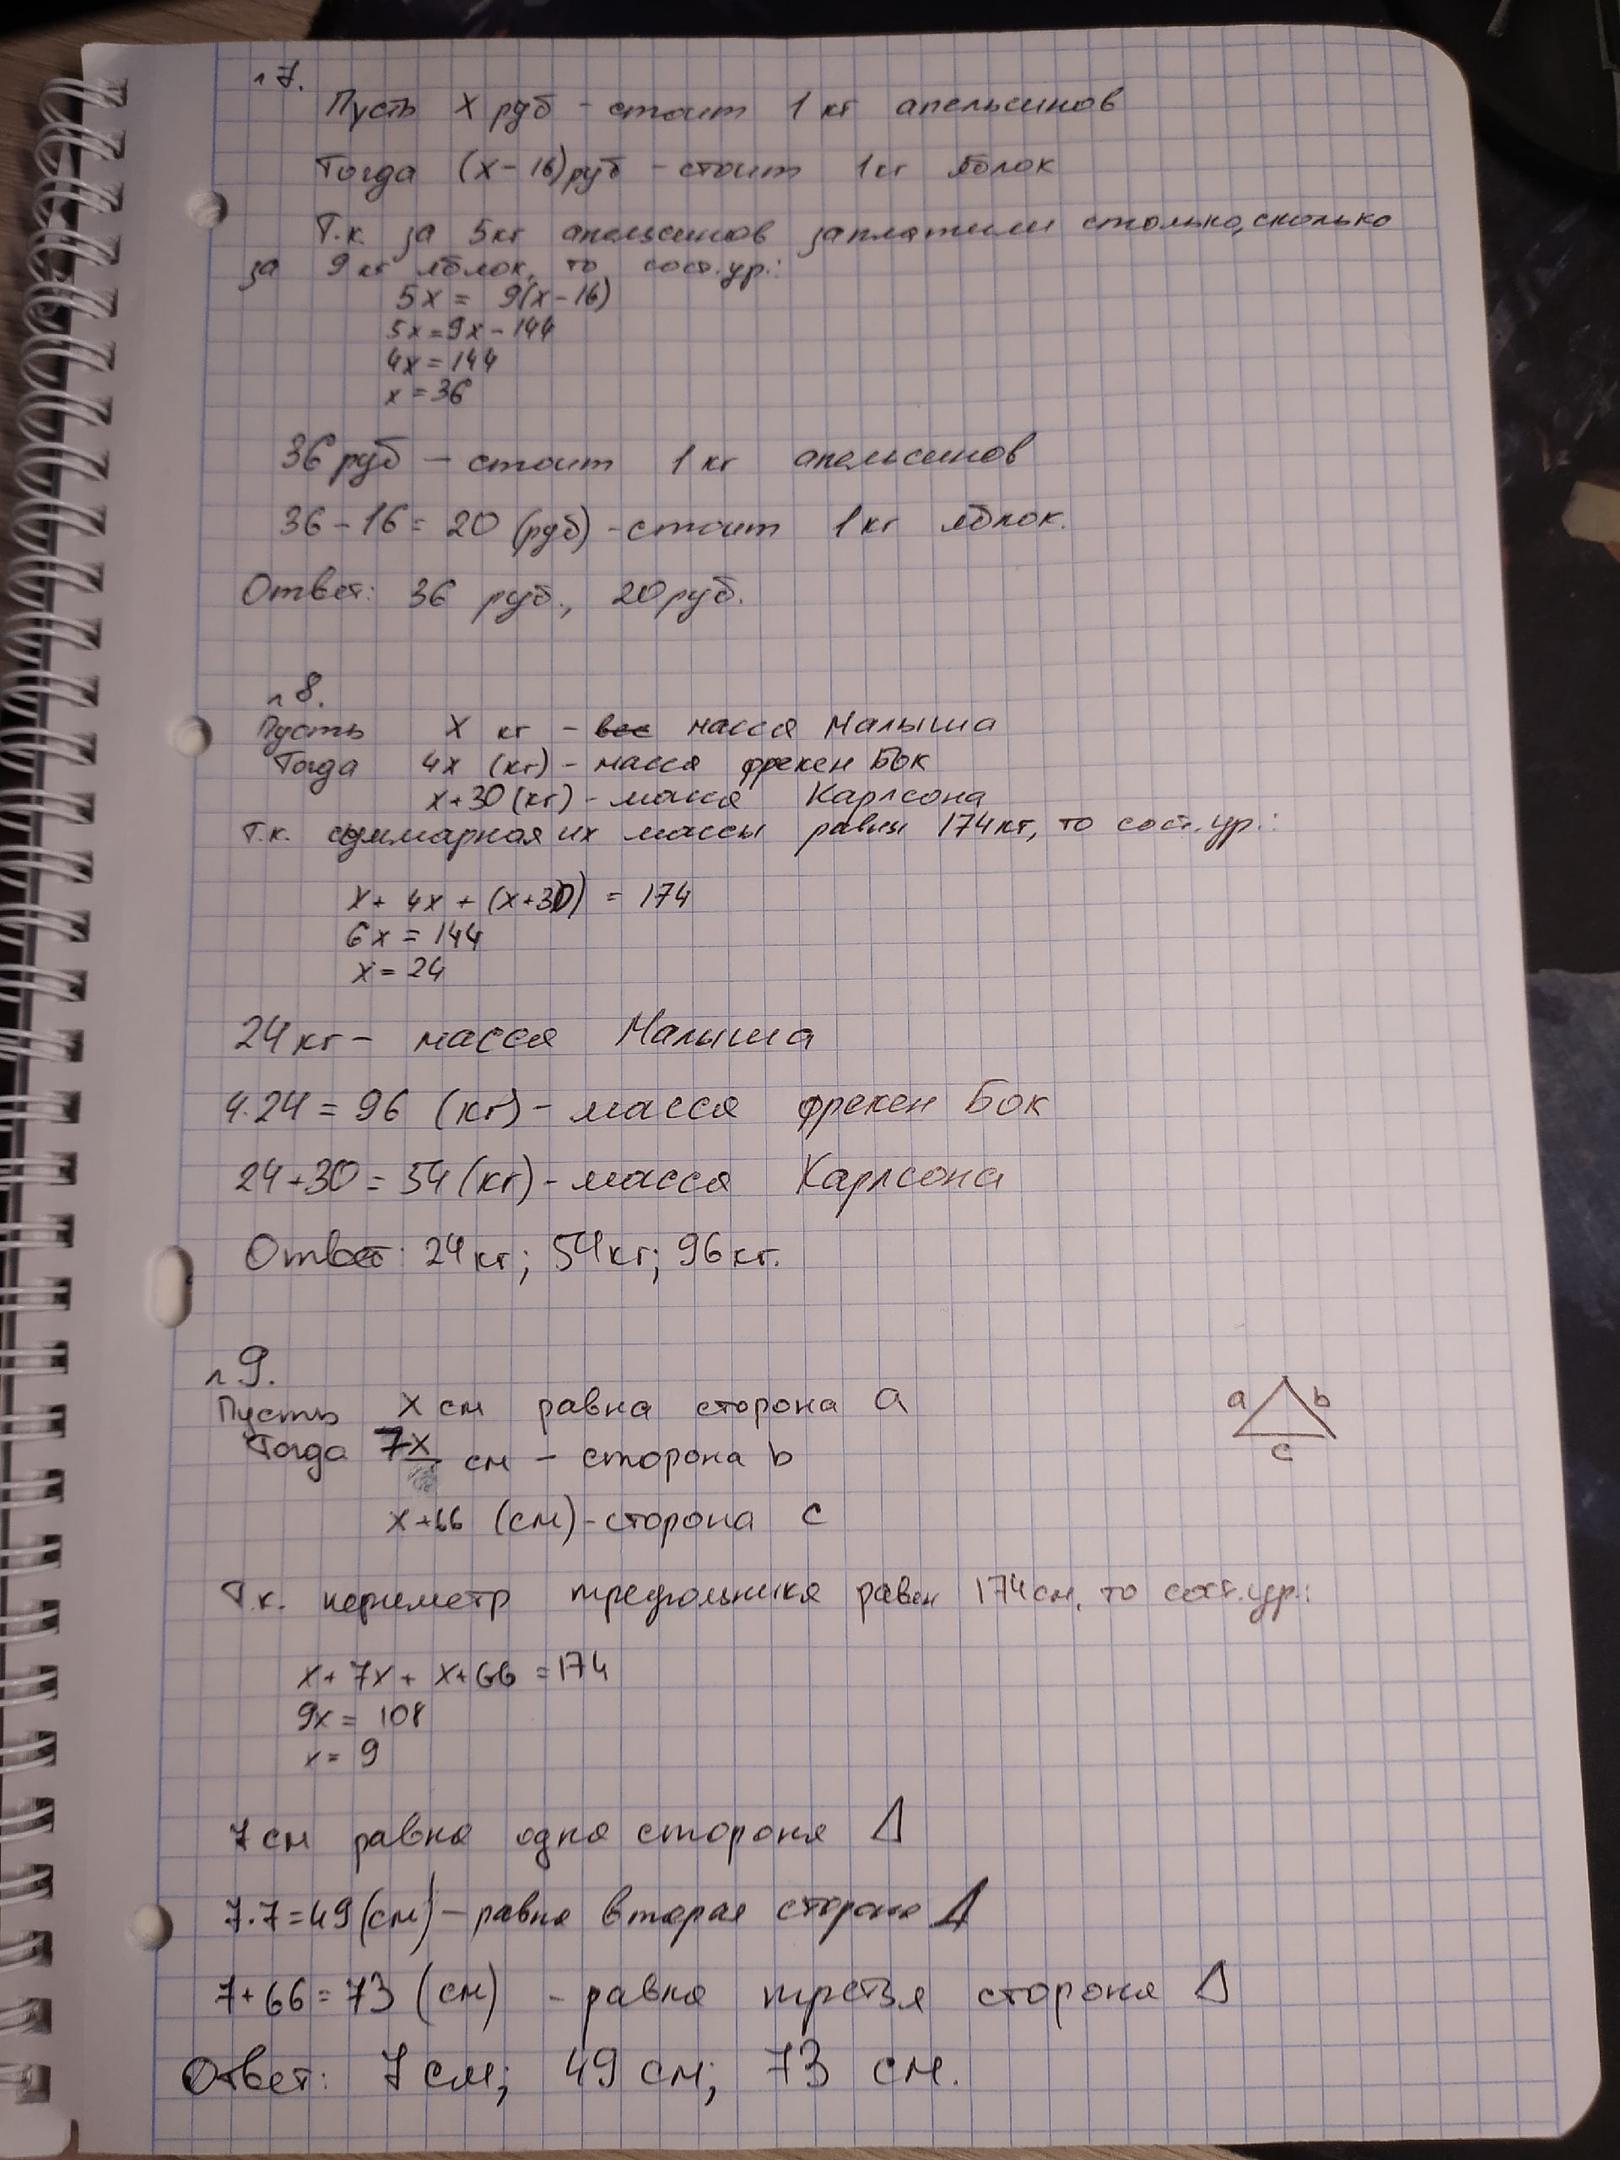 №7.
Пусть х руб - стоит 1 кг апельсинов
Тогда (х-16)руб - стоит 1кг яблок
Т.к. за 5кг апельсинов заплатили столько, сколько
за 9 кг яблок, то сост. ур.:
5х = 9(х-16)
5х=9х-144
4х=144
х=36
36 руб - стоит 1 кг апельсинов
36-16=20 (руб) - стоит 1кг яблок.
Ответ: 36 руб., 20 руб.
№8.
Пусть х кг - вес масса Малыша
Тогда 4х (кг) - масса фрекен Бок
х+30(кг) - масса Карлсона
Т.к. суммарная их массы равны 174кг, то сост. ур.:
х+ 4х + (х+30) = 174
6х = 144
х= 24
24кг - масса Малыша
4·24=96 (кг) - масса фрекен Бок
24+30=54(кг) - масса Карлсона
Ответ: 24кг; 54кг; 96кг.
№9.
Пусть х см равна сторона a
a b
Тогда 7х см - сторона b
c
х+66 (см)-сторона c
Т.к. периметр треугольника равен 174см, то сост. ур.:
х+ 7х + х+66 =174
9х= 108
х= 9
7см равна одна сторона Δ
7·7=49(см) - равна вторая сторона Δ
7+66=73 (см) - равна третья сторона Δ
Ответ: 7 см; 49 см; 73 см.